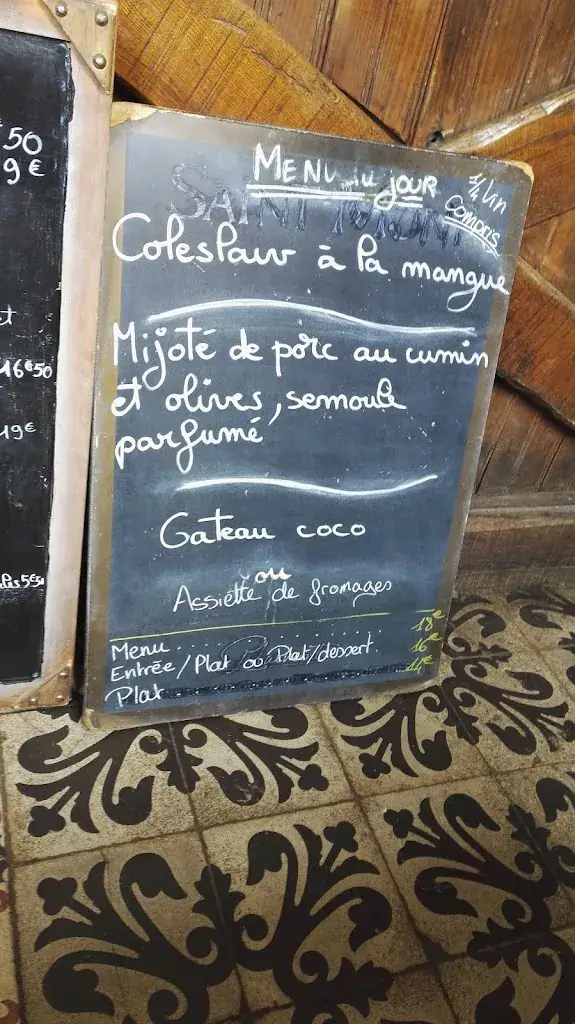 50
9€
16€50
19€
5€50
MENU du jOUR
1/4 vin
compris
Coleslaw à la mangue
Mijoté de porc au cumin
et olives, semoule
parfumé
Gateau coco
ou
Assiette de fromages
Menu........ 18€
Entrée/Plat ou Plat/dessert. 16€
Plat 14€